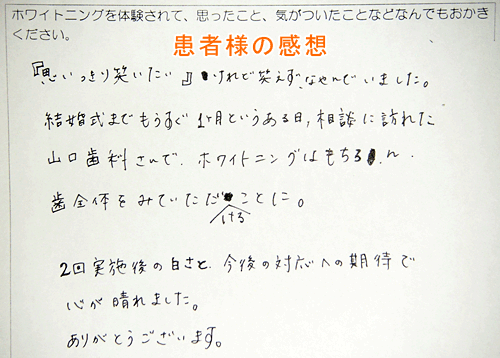 ホワイトニングを体験されて、思ったこと、気がついたことなどなんでもおかき
ください。
患者様の感想
『思いっきり笑いたい』けれど笑えず、なやんでいました。
結婚式までもうすぐ1ヶ月というある日、相談に訪れた
山口歯科さんで、ホワイトニングはもちろん
歯全体をみていただけることに。
2回実施後の白さと、今後の対応への期待で
心が晴れました。
ありがとうございます。